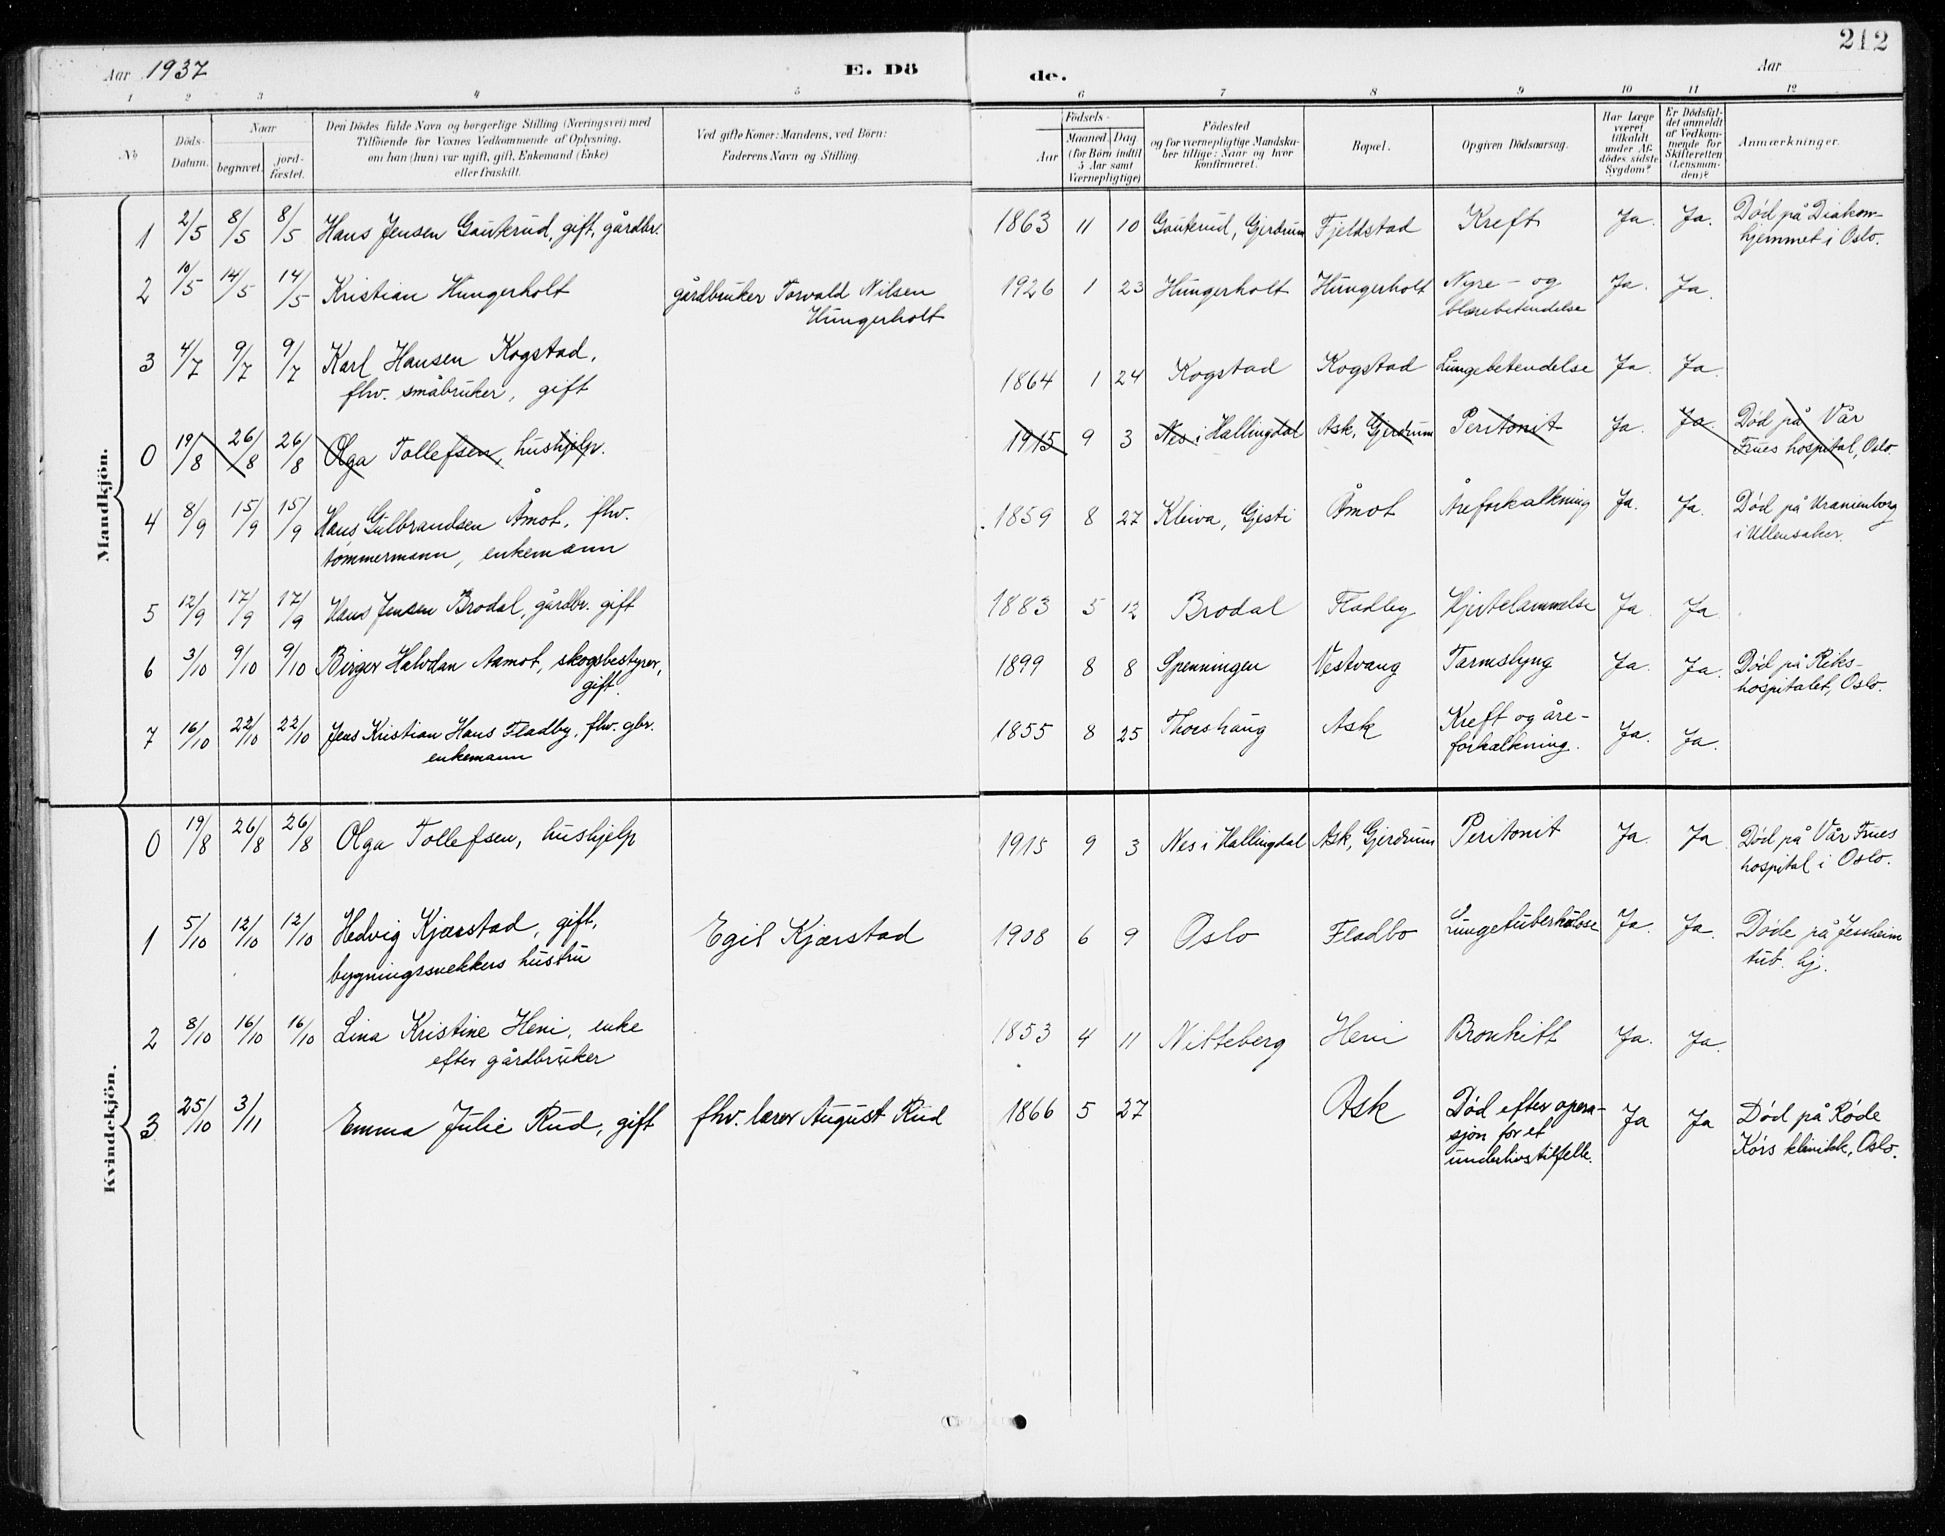 212
Aar 1937 E. Dö de. Aar
1 2 3 4 5 6 7 8 9 10 11 12
No
Döds-Datum.
Naar
begravet.
jord-fæstet.
Den Dödes fulde Navn og borgerlige Stilling (Næringsvei) med
Tilföiende for Voxnes Vedkommende af Oplysning,
om han (hun) var ugift, gift, Enkemand (Enke)
eller fraskilt.
Ved gifte Koner: Mandens, ved Börn:
Faderens Navn og Stilling.
Födsels-
Aar
Maaned Dag
(for Börn indtil
5 Aar samt
Værnepligtige)
Födested
og for værnepligtige Mandska-
ber tillige: Naar og hvor
konfirmeret.
Bopæl.
Opgiven Dödsaarsag.
Har Læge
været
tilkaldt
under Af-
dödes sidste
Sygdom?
Er Dödsfal-
det anmeldt
af Vedkom-
mende for
Skifteretten
(Lensman-
den)?
Anmærkninger.
Mandkjön.
1 2/5 8/5 8/5 Hans Jensen Gauterud, gift, gårdbr. 1863 11 10 Gauterud, Gjerdrum Fjeldstad Kreft Ja. Ja. Død på Diakon-
hjemmet i Oslo.
2 10/5 14/5 14/5 Kristian Hungerholt gårdbruker Torvald Nilsen 1926 1 23 Hungerholt Hungerholt Nyre- og Ja. Ja.
Hungerholt blærebetendelse
3 4/7 9/7 9/7 Karl Hansen Kogstad, 1864 1 24 Kogstad Kogstad Lungebetendelse Ja. Ja.
fhv. småbruker, gift
0 19/8 26/8 26/8 Olga Tollefsen, hushjelp. 1915 9 3 Nes i Hallingdal Ask, Gjerdrum Peritonit Ja. Ja. Død på Vår
Frues hospital, Oslo.
4 8/9 15/9 15/9 Hans Gulbrandsen Åmot, fhv. 1859 8 27 Kleiva, Gjesti Åmot Åreforkalkning Ja. Ja. Død på Uranienborg
tømmermann, enkemann i Ullensaker.
5 12/9 17/9 17/9 Hans Jensen Brodal, gårdbr. gift 1883 5 12 Brodal Fladby Hjertelammelse Ja. Ja.
6 3/10 9/10 9/10 Birger Halvdan Aamot, skogsbestyrer, 1899 8 8 Spenningen Vestvang Tarmslyng Ja. Ja. Død på Riks-
gift. hospitalet, Oslo.
7 16/10 22/10 22/10 Jens Kristian Hans Fladby, fhv. gbr. 1855 8 25 Thorshaug Ask Kreft og åre- Ja. Ja.
enkemann forkalkning.
Kvindekjön.
0 19/8 26/8 26/8 Olga Tollefsen, hushjelp 1915 9 3 Nes i Hallingdal Ask, Gjerdrum Peritonit Ja. Ja Død på Vår Frues
hospital i Oslo.
1 5/10 12/10 12/10 Hedvig Kjærstad, gift, Egil Kjærstad 1908 6 9 Oslo Fladbo Lungetuberkulose Ja. Ja. Døde på Jessheim
bygningssnekkers hustru tub. hj.
2 8/10 16/10 16/10 Lina Kristine Heni, enke 1853 4 11 Nitteberg Heni Bronkitt Ja. Ja.
efter gårdbruker
3 25/10 3/11 Emma Julie Rud, gift fhv. lærer August Rud 1866 5 27 Ask Død efter opera- Ja Ja Død på Røde
sjon for et Kors klinikk, Oslo.
underlivstilfelle.